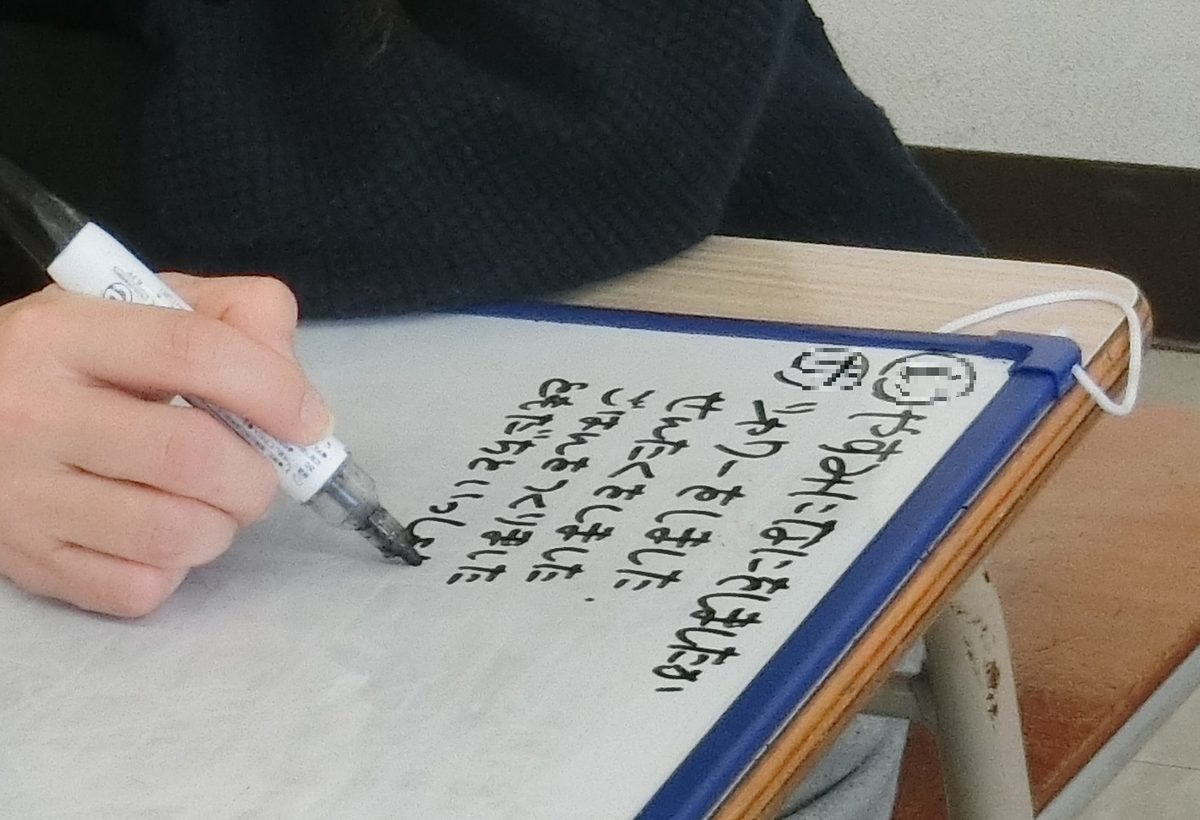 やすみになにをしましたか
をしました
せんたくをしました
ごはんをつくりました
ともだちといっしょ